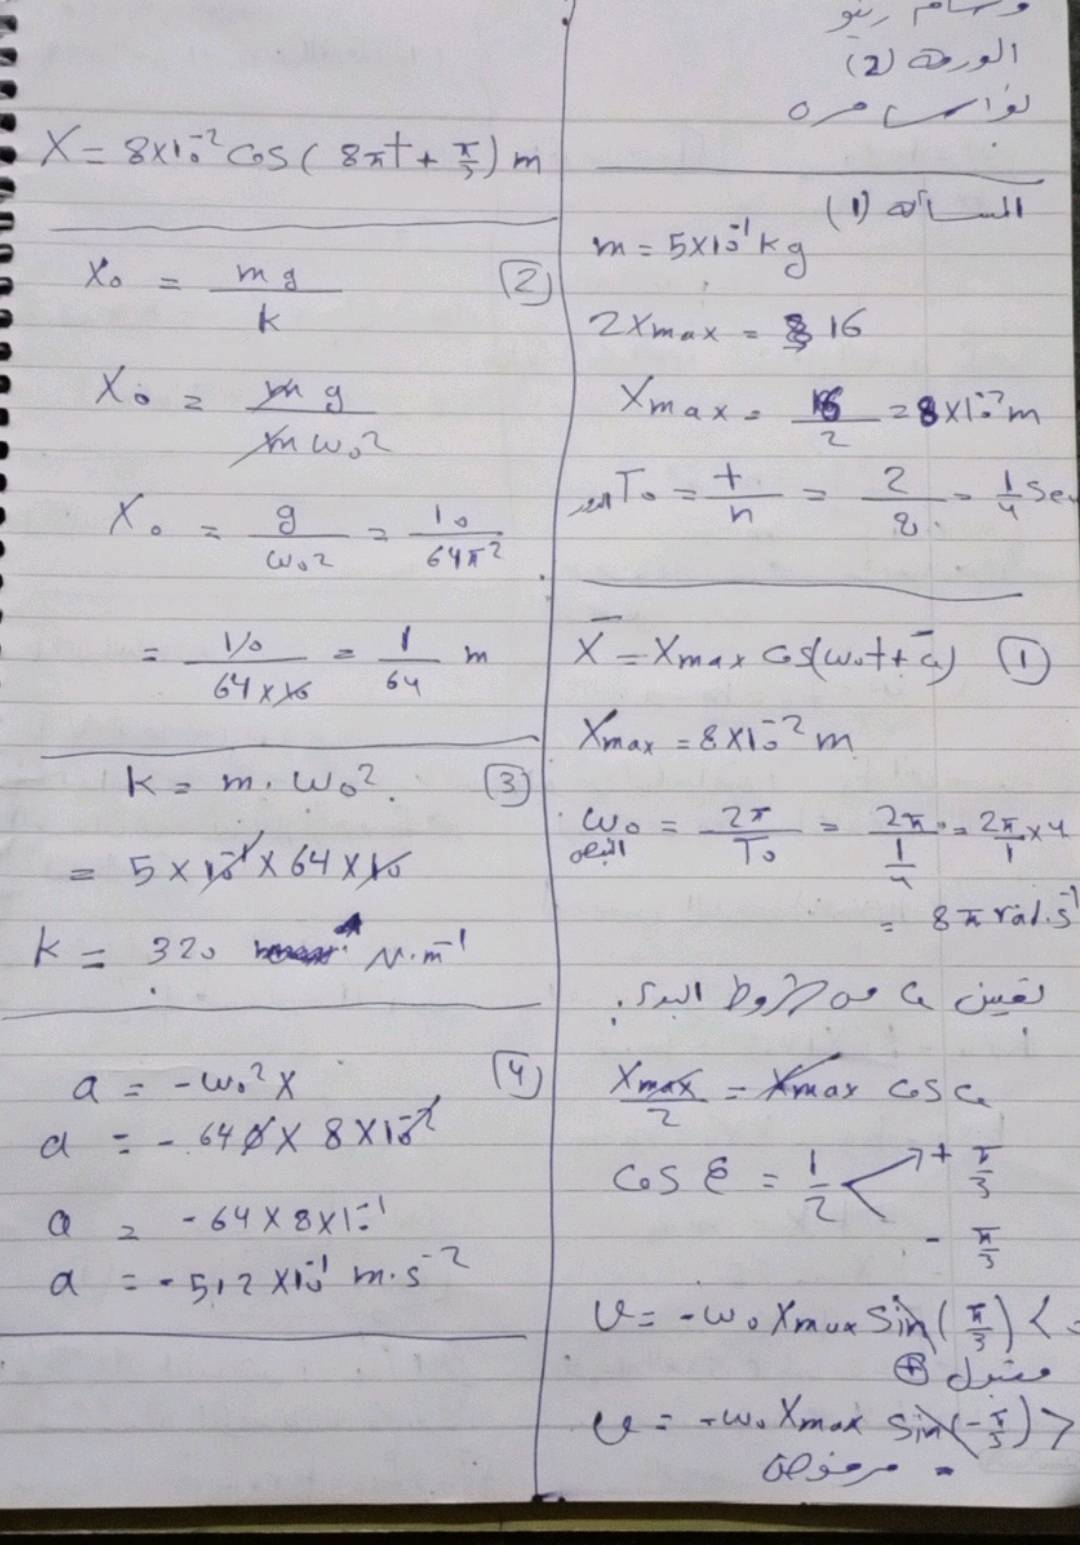 وسام زينو
الورقة (2)
نواس مرن
المسألة (1)
m = 5×10⁻¹ kg
2Xmax = 16
Xmax = 16/2 = 8×10⁻² m
الدور T₀ = t/n = 2/8 = 1/4 Sec
X̄ = Xmax cos(ω₀t + φ̄) ①
Xmax = 8×10⁻² m
النبض ω₀ = 2π/T₀ = 2π/(1/4) = 2π/1 × 4
= 8π rad.s⁻¹
نعين φ من شروط البدء:
Xmax/2 = Xmax cos φ
cos φ = 1/2 + π/3
- π/3
v = -ω₀ Xmax sin(π/3) <
مقبول ⊕
v = -ω₀ Xmax sin(-π/3) >
- مرفوض
X = 8×10⁻² cos(8πt + π/3) m
X₀ = mg/k ②
X₀ = mg/mω₀²
X₀ = g/ω₀² = 10/64π²
= 10/64×10 = 1/64 m
k = m.ω₀². ③
= 5×10⁻¹×64×10
k = 320 N.m⁻¹
a = -ω₀²X ④
a = -640×8×10⁻²
a = -64×8×10⁻¹
a = -512×10⁻¹ m.s⁻²